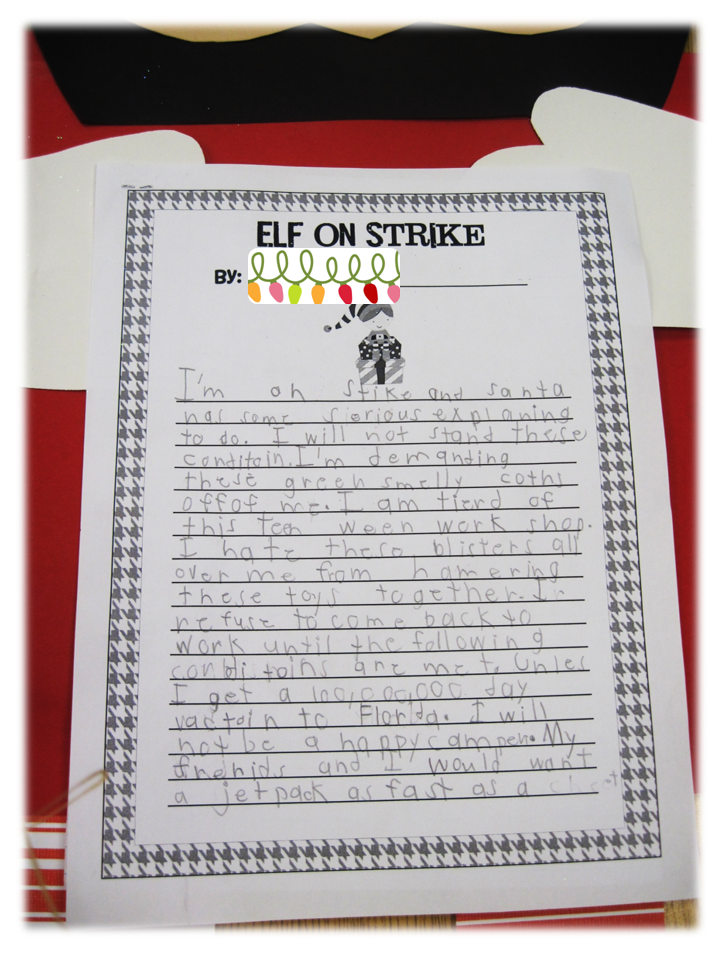 ELF ON STRIKE
BY:
I'm on stike and santa
has some sierious explaning
to do. I will not stand these
contitoin. I'm demanding
these green smelly coths
off of me. I am tierd of
this teen ween work shop.
I hate these blisters all
over me from hamering
these toys together. I
refuse to come back to
work until the following
conditoins are met. Unles
I get a 100,000,000 day
vactoin to Florida. I will
not be a happy camper. My
and I would want
a jetpack as fast as a